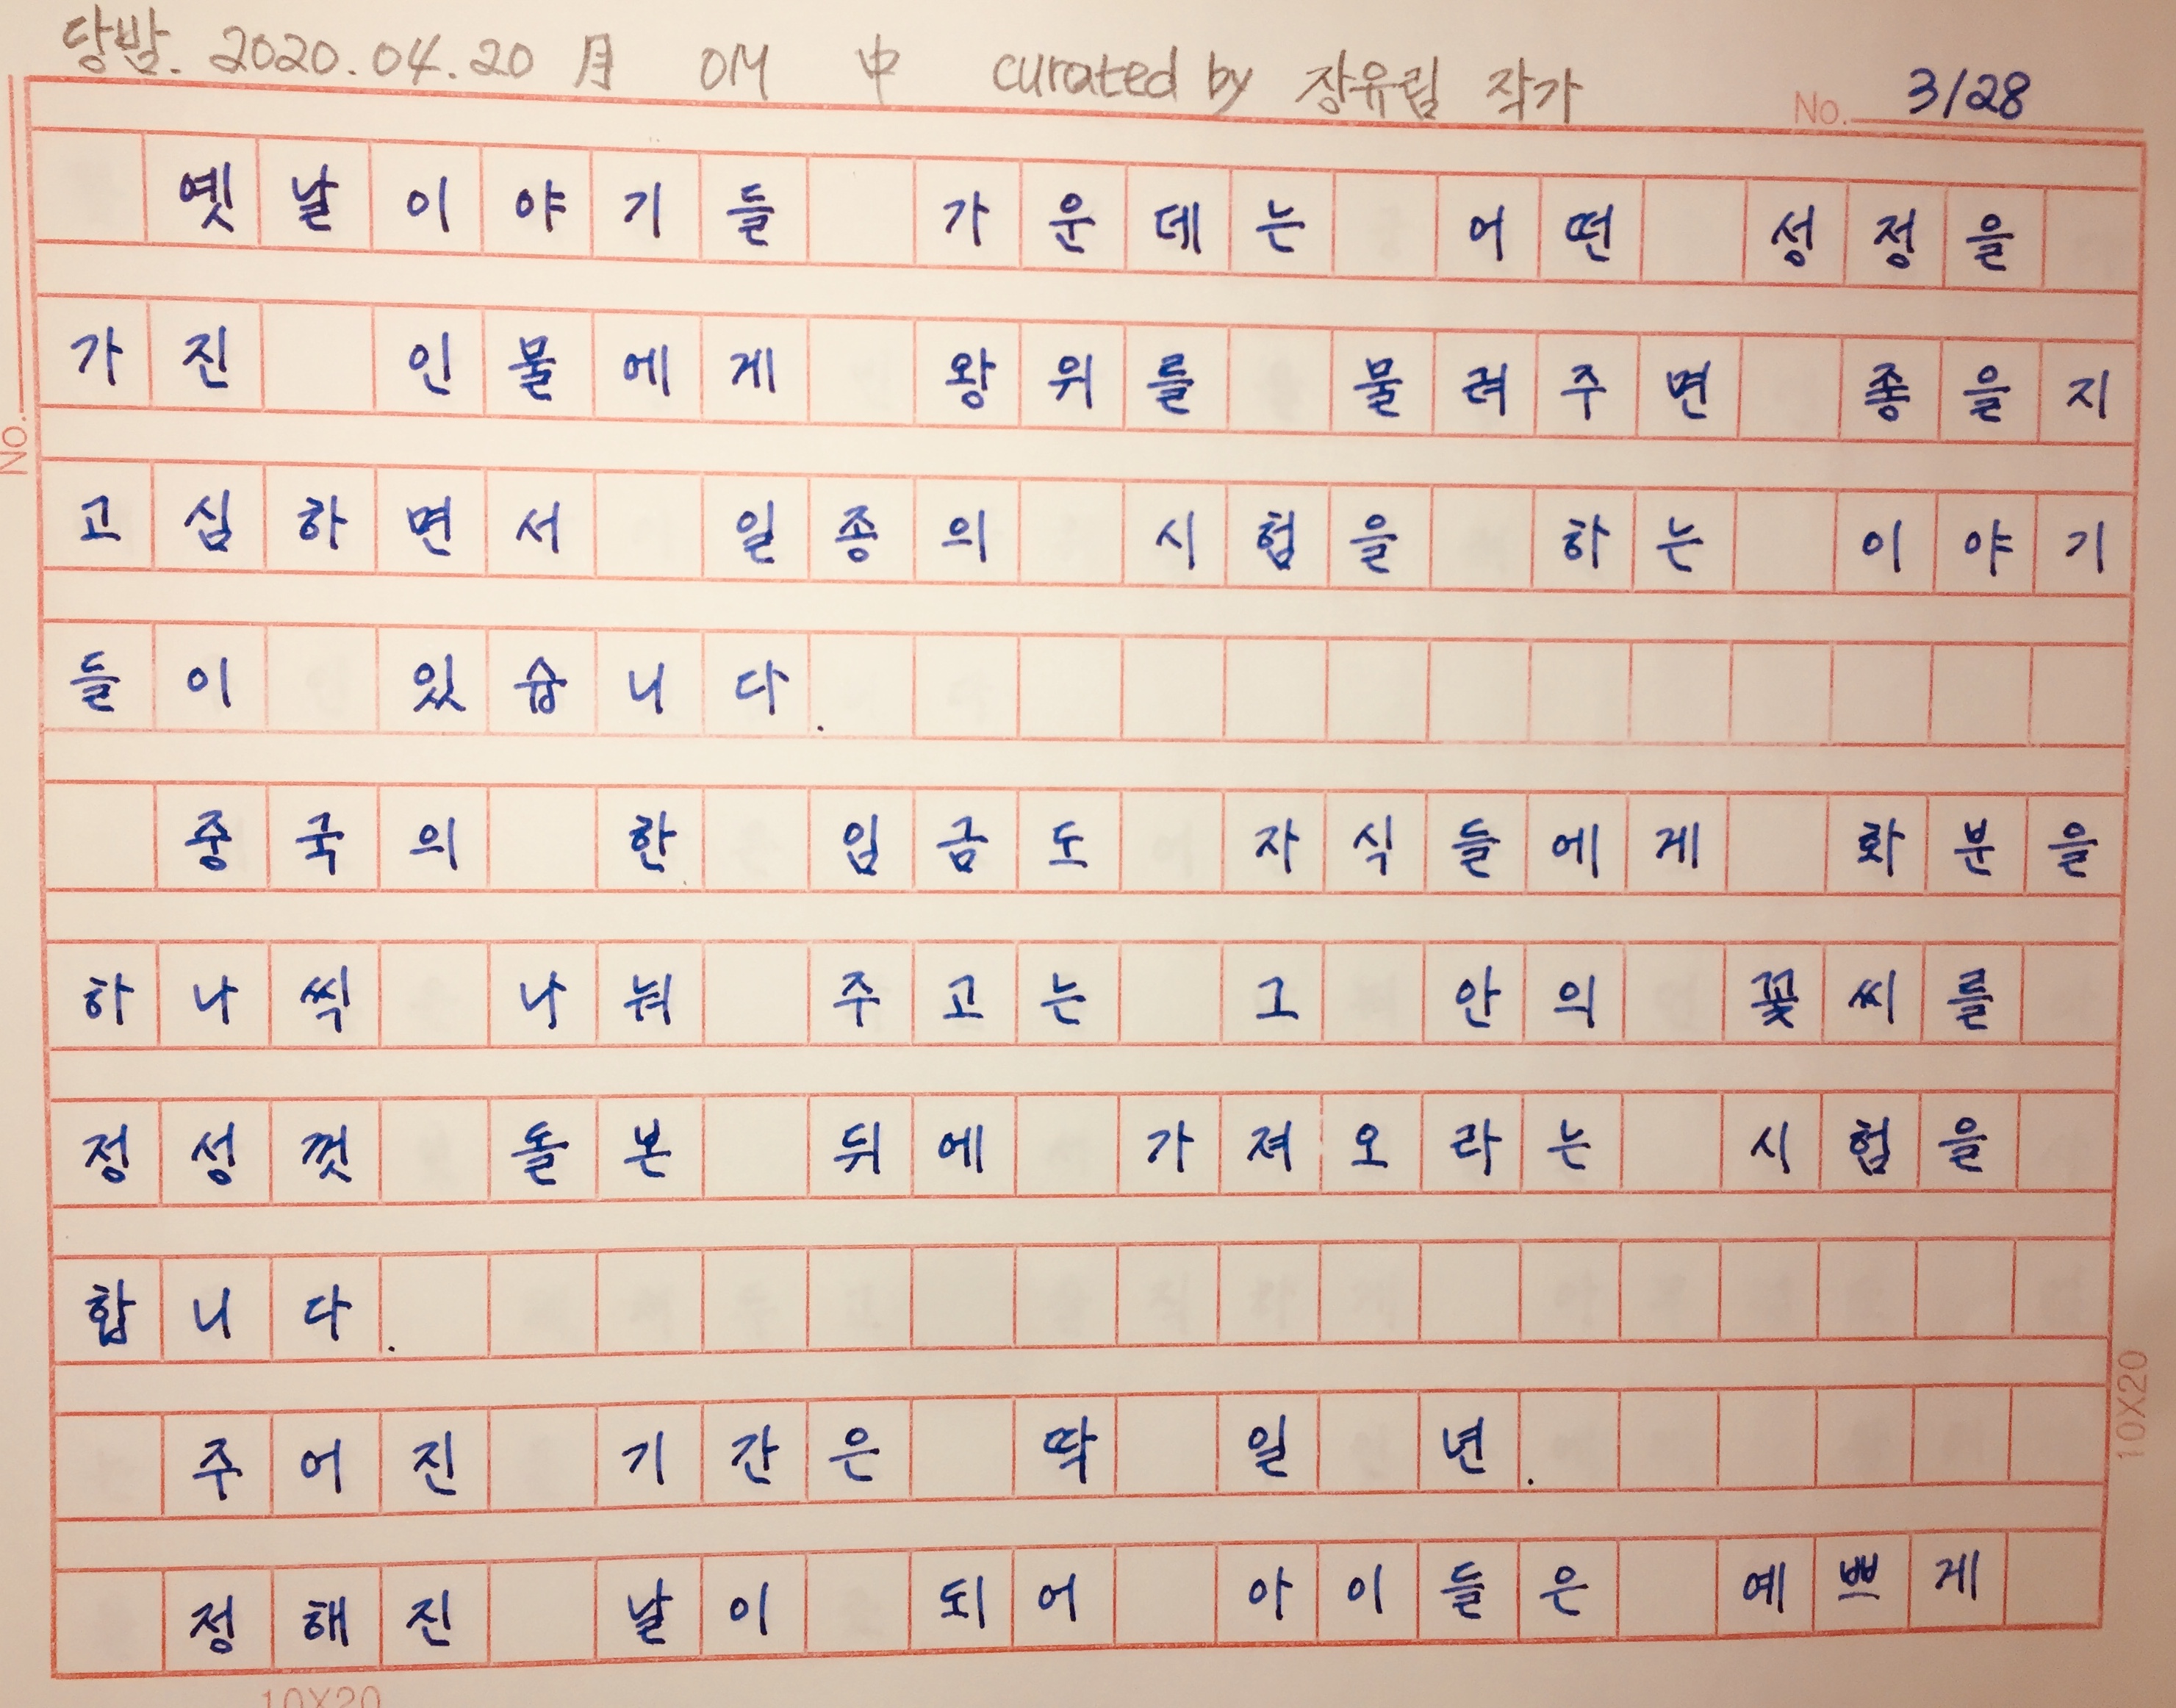 당밤. 2020.04.20 月 OM 中 curated by 장유림 작가 No. 3/28
옛날이야기들 가운데는 어떤 성정을
가진 인물에게 왕위를 물려주면 좋을지
고심하면서 일종의 시험을 하는 이야기
들이 있습니다.
중국의 한 임금도 자식들에게 화분을
하나씩 나눠 주고는 그 안의 꽃씨를
정성껏 돌본 뒤에 가져오라는 시험을
합니다.
주어진 기간은 딱 일 년.
정해진 날이 되어 아이들은 예쁘게
No.
10X20
10X20